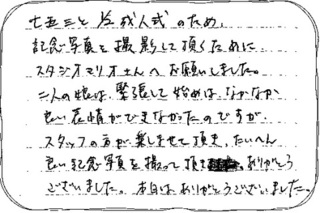 七五三と成人式のため、
記念写真を撮影して頂くために
スタジオマリオさんへお願いしました。
二人の娘は、緊張して始めは、なかなか
良い表情ができなかったのですが
スタッフの方が楽しませて頂き、たいへん
良い記念写真を撮って頂き ありがとう
ございました。本日はありがとうございました。